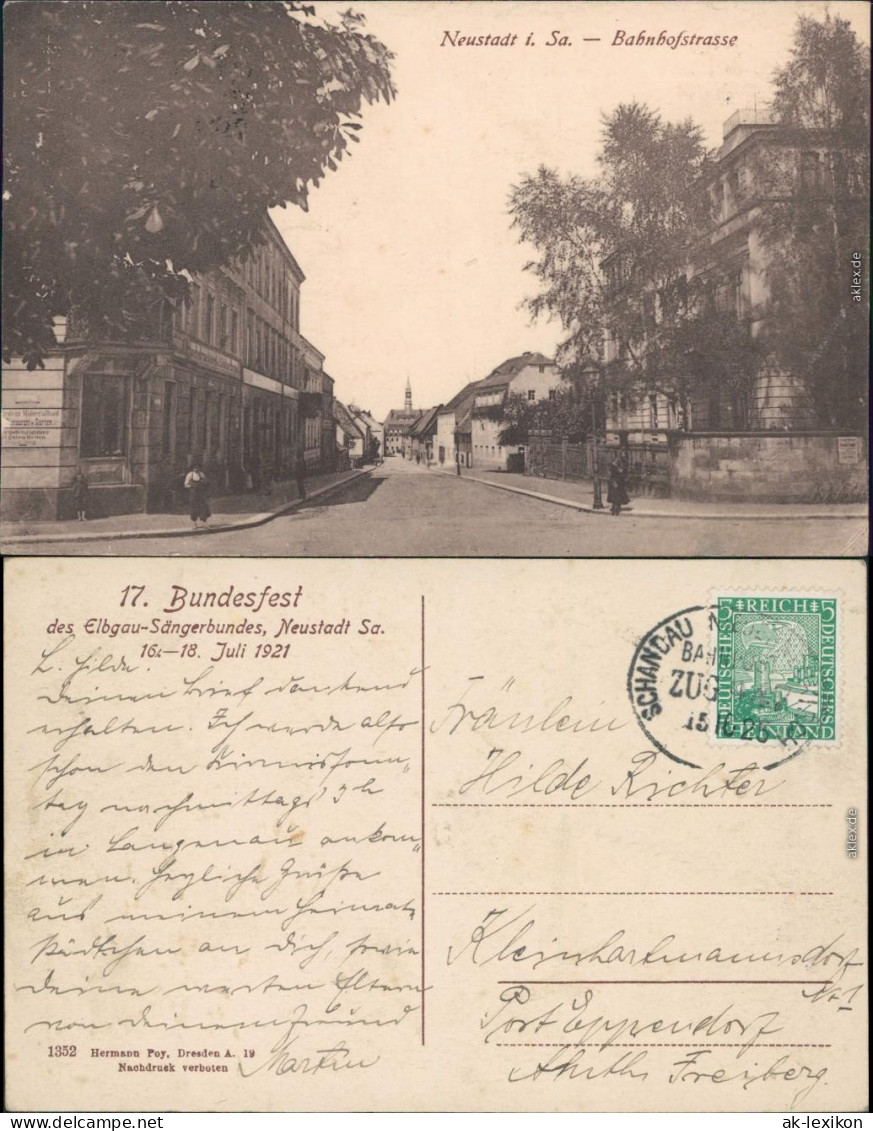 Neustadt i. Sa. — Bahnhofstrasse
aklex.de
17. Bundesfest
des Elbgau-Sängerbundes, Neustadt Sa.
16.—18. Juli 1921
L. Hilde.
Deinen Brief dankend
erhalten. Ich werde also
schon den
tag nachmittags 3h
in Langenau ankom„
men. Herzliche Grüße
aus meinem Heimat„
städtchen an Dich, sowie
Deine werten Eltern
von Deinem Freund
Martin
1352 Hermann Poy, Dresden A. 19
Nachdruck verboten
5 REICH 5
DEUTSCHES
DEUTSCHES
SCHANDAU
ZUG
Fräulein
Hilde Richter
Kleinhartmannsdorf
No 1
Post Eppendorf
Amtsh. Freiberg.
aklex.de
ak-lexikon
ak-lexikon